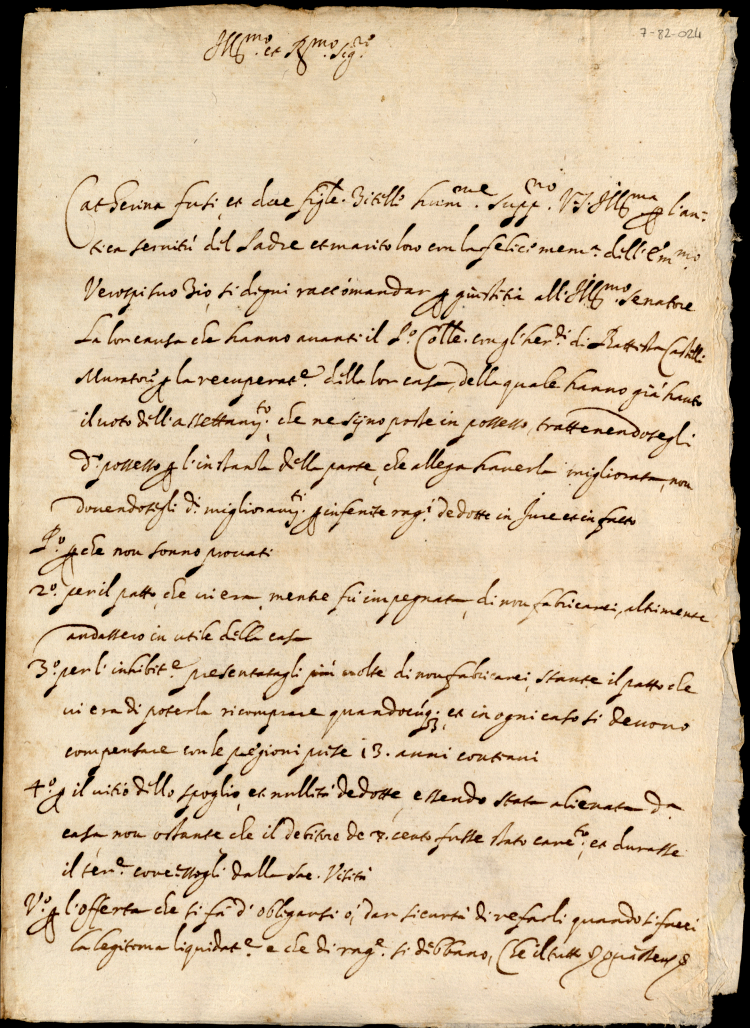 7-82-024
Ill.mo et R.mo Sig.re
Catherina fusi, et due figle. Zitelle hum.me supp.no V.S. Ill.ma p l'an=
tica servitù del Padre et marito loro con la felice mem.a dell' Em.mo
Verospi suo Zio, si degni raccomandar p giustitia all' Ill.mo Senatore
La lor causa che hanno avanti il P.o Colle. con gl'her.di di Battista Castelli
Murator p la recuperat.e della lor casa, della quale hanno già hauto
il voto dell' assettam.to che ne sijno poste in possesso, trattenendosegli
d.o possesso p l'instanza della parte, che allega haverla migliorata, non
dovendosegli d.i miglioram.ti p infenite rag.i dedotte in Jure et in facto
P.o p che non sonno provati
2.o per il patto, che vi era, mentre fù impegnata, di non fabricarci, altimente
andassero in utile della casa
3.o per l'inhibit.e presentatagli più volte di non fabricarci, stante il patto che
vi era di poterla ricomprare quandocúq3, et in ogni caso si devono
compensare con le pegioni prese i3. anni continui
4.o p il vitio dello spoglio, et nullità dedotte, essendo stata alienata d.a
casa, non ostante che il debitore de 8. cento fusse stato carc.to, et durasse
il ter.e concessogli dalla Sac. Visita
V.o p l'offerta che si fà d'obligarsi ò, dar sicurtà di refarli quando si facci
la legitoma liquidat.e e che di rag.e si debbano, Che il tutto